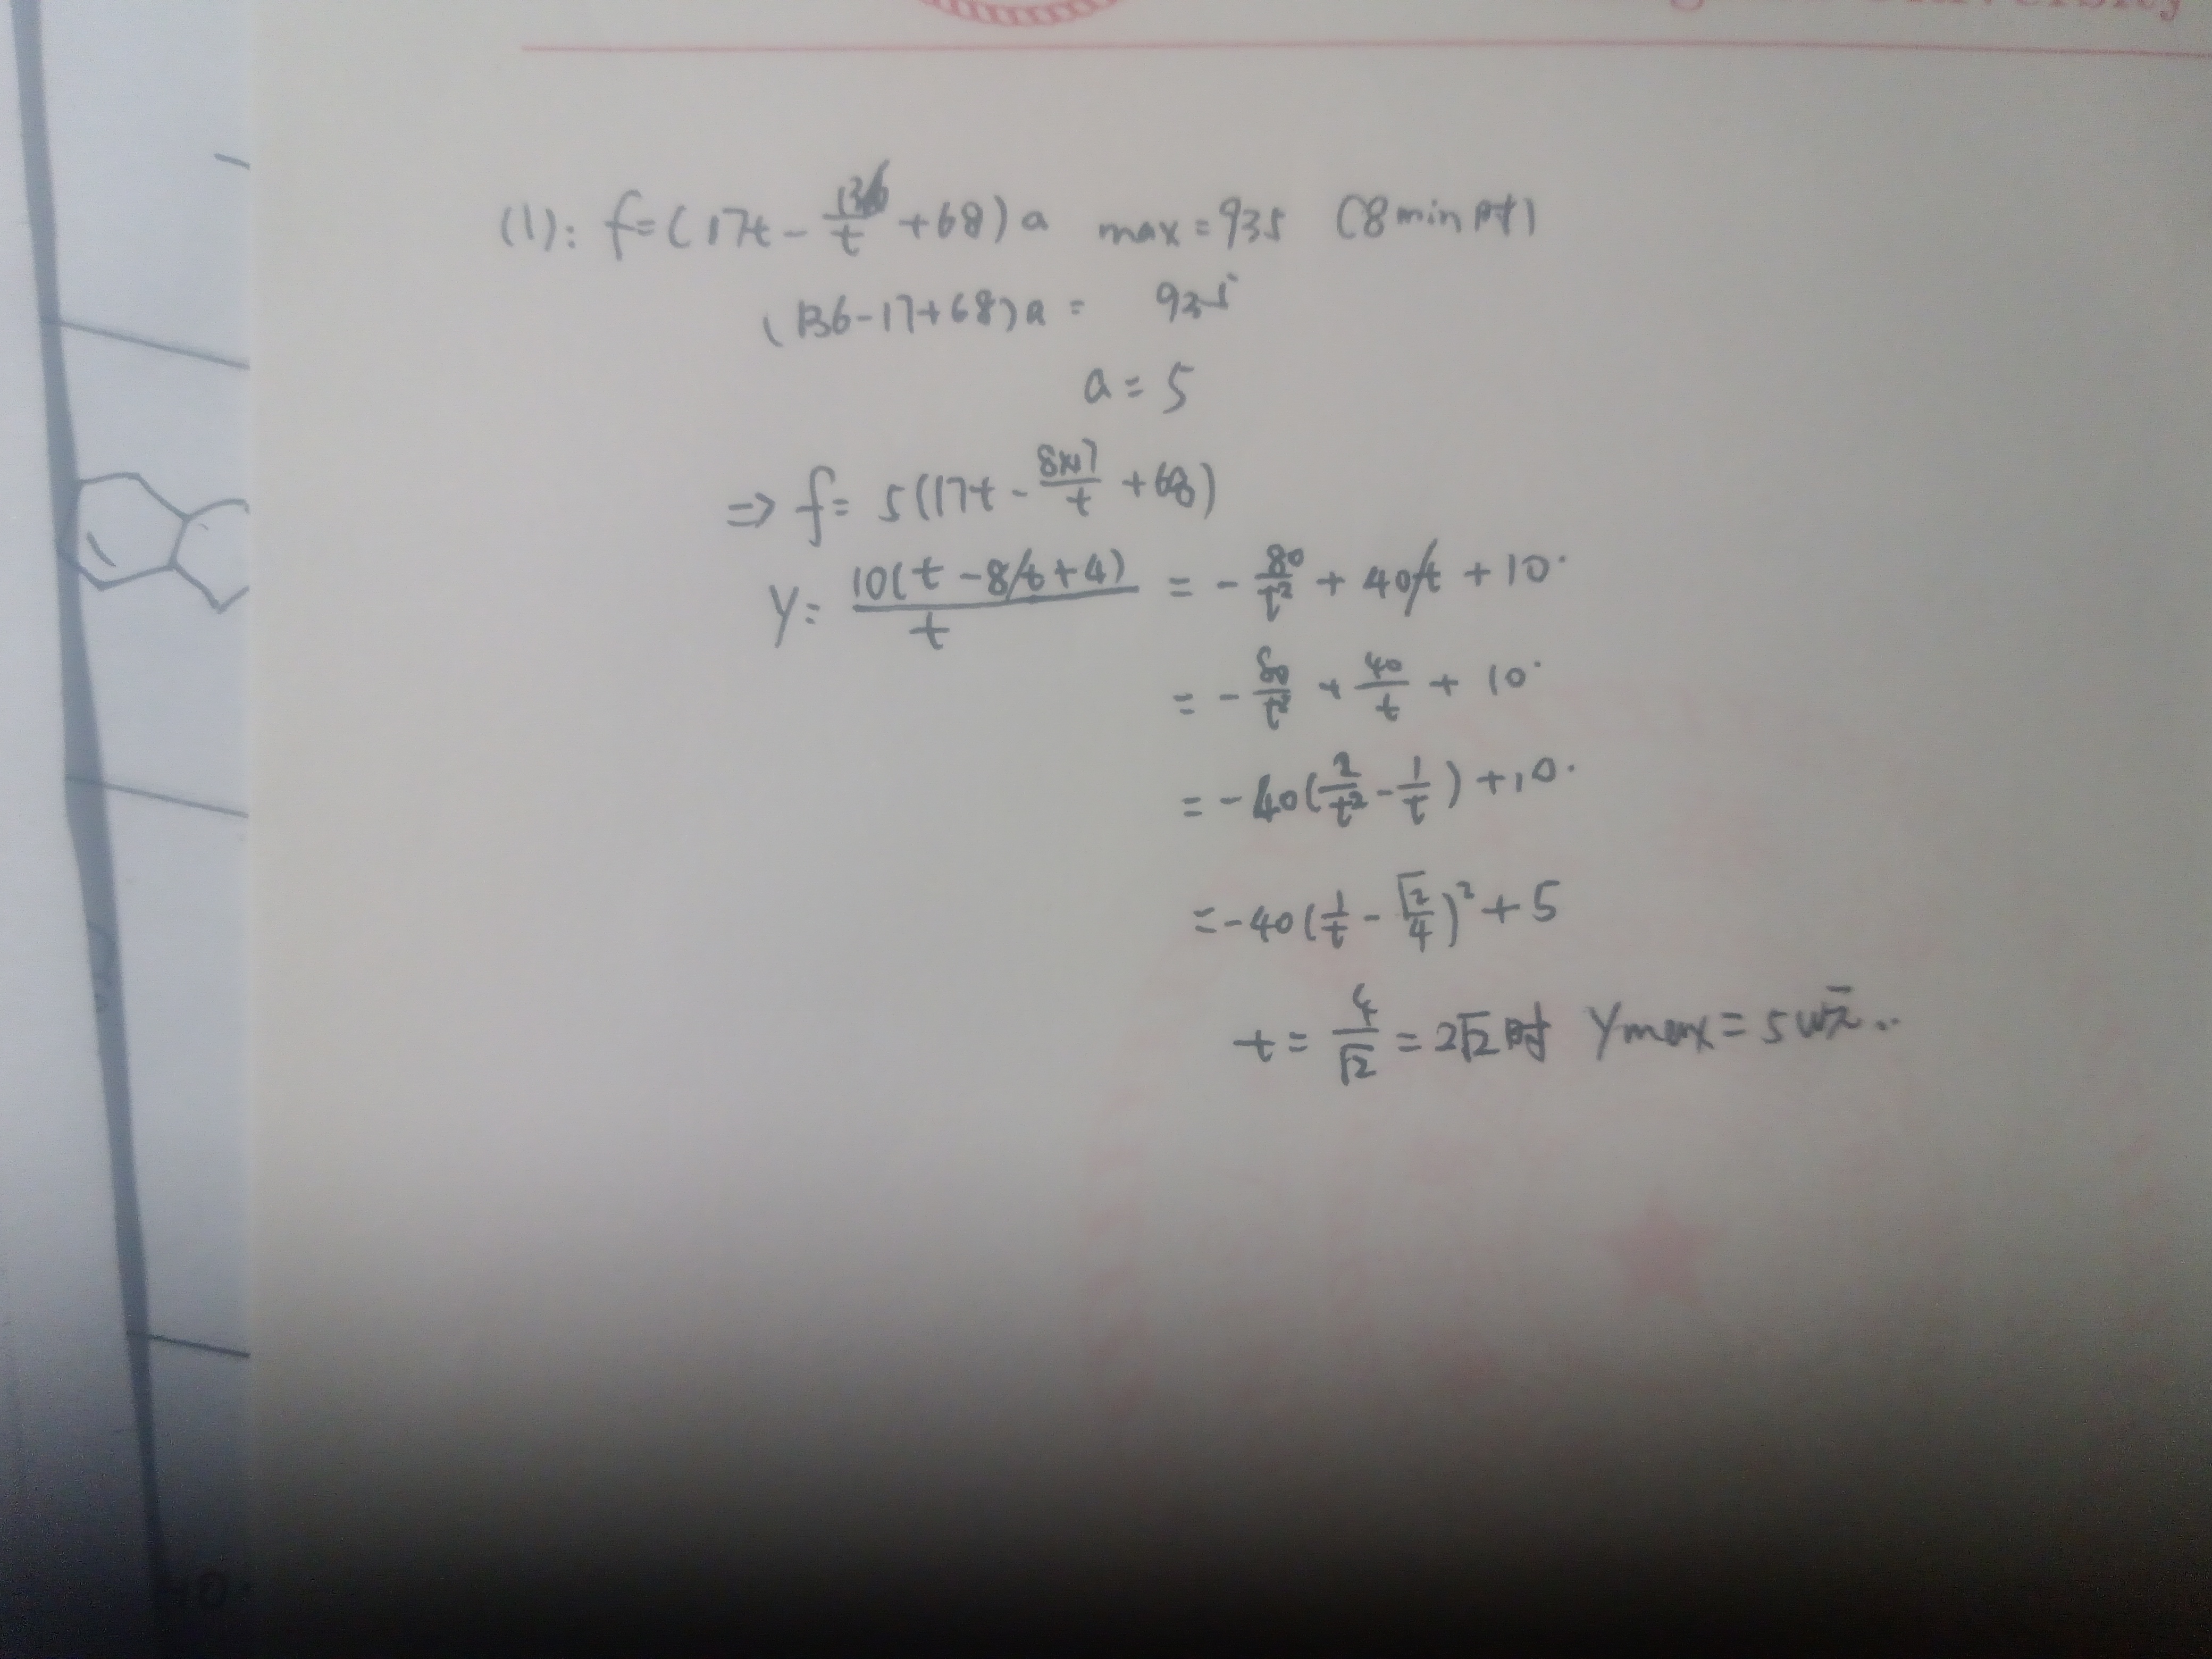 (1): f=(17t - 136/t + 68)a max=935 (8min时)
(136-17+68)a = 935
a = 5
=> f= 5(17t - 8×17/t + 68)
Y= 10(t - 8/t + 4)/t = - 80/t² + 40/t + 10.
= - 80/t² + 40/t + 10.
= -40(2/t² - 1/t) + 10.
= -40(1/t - √2/4)² + 5
t = 4/√2 = 2√2时 Ymax = 5w元..